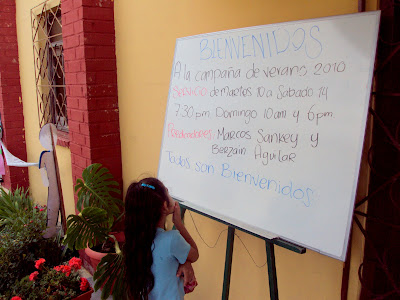 BIENVENIDOS
A la campaña de verano 2010
SERVICIO de martes 10 a Sabado 14
7:30 pm Domingo 10am y 6pm
Predicadores: Marcos Sankey y
Berzain Aguilar
Todos son Bienvenidos